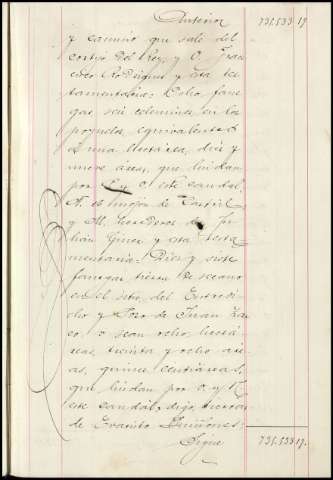 Anterior 731.533 19
y camino que sale del
cortijo del Rey, y O. Fran
cisco Rodriguez y esta tes
tamentaria. Ocho fane
gas, seis celemines, en los
poyuelos, equivalentes
á una hectárea, diez y
nueve áreas, que lindan
por este caudal,
N. de
y M. herederos de Ju
lián Giner y esta testa
mentaria. Diez y siete
fanegas tierra de secano
en el sitio del Estrecho
cho y Pozo de Juan
o sean ocho hectá
reas, treinta y ocho áre
as, quince centiáreas,
que lindan por O. y N.
este caudal, digo, tierras
de Evaristo Quiñones.
Sigue 731.533 19.